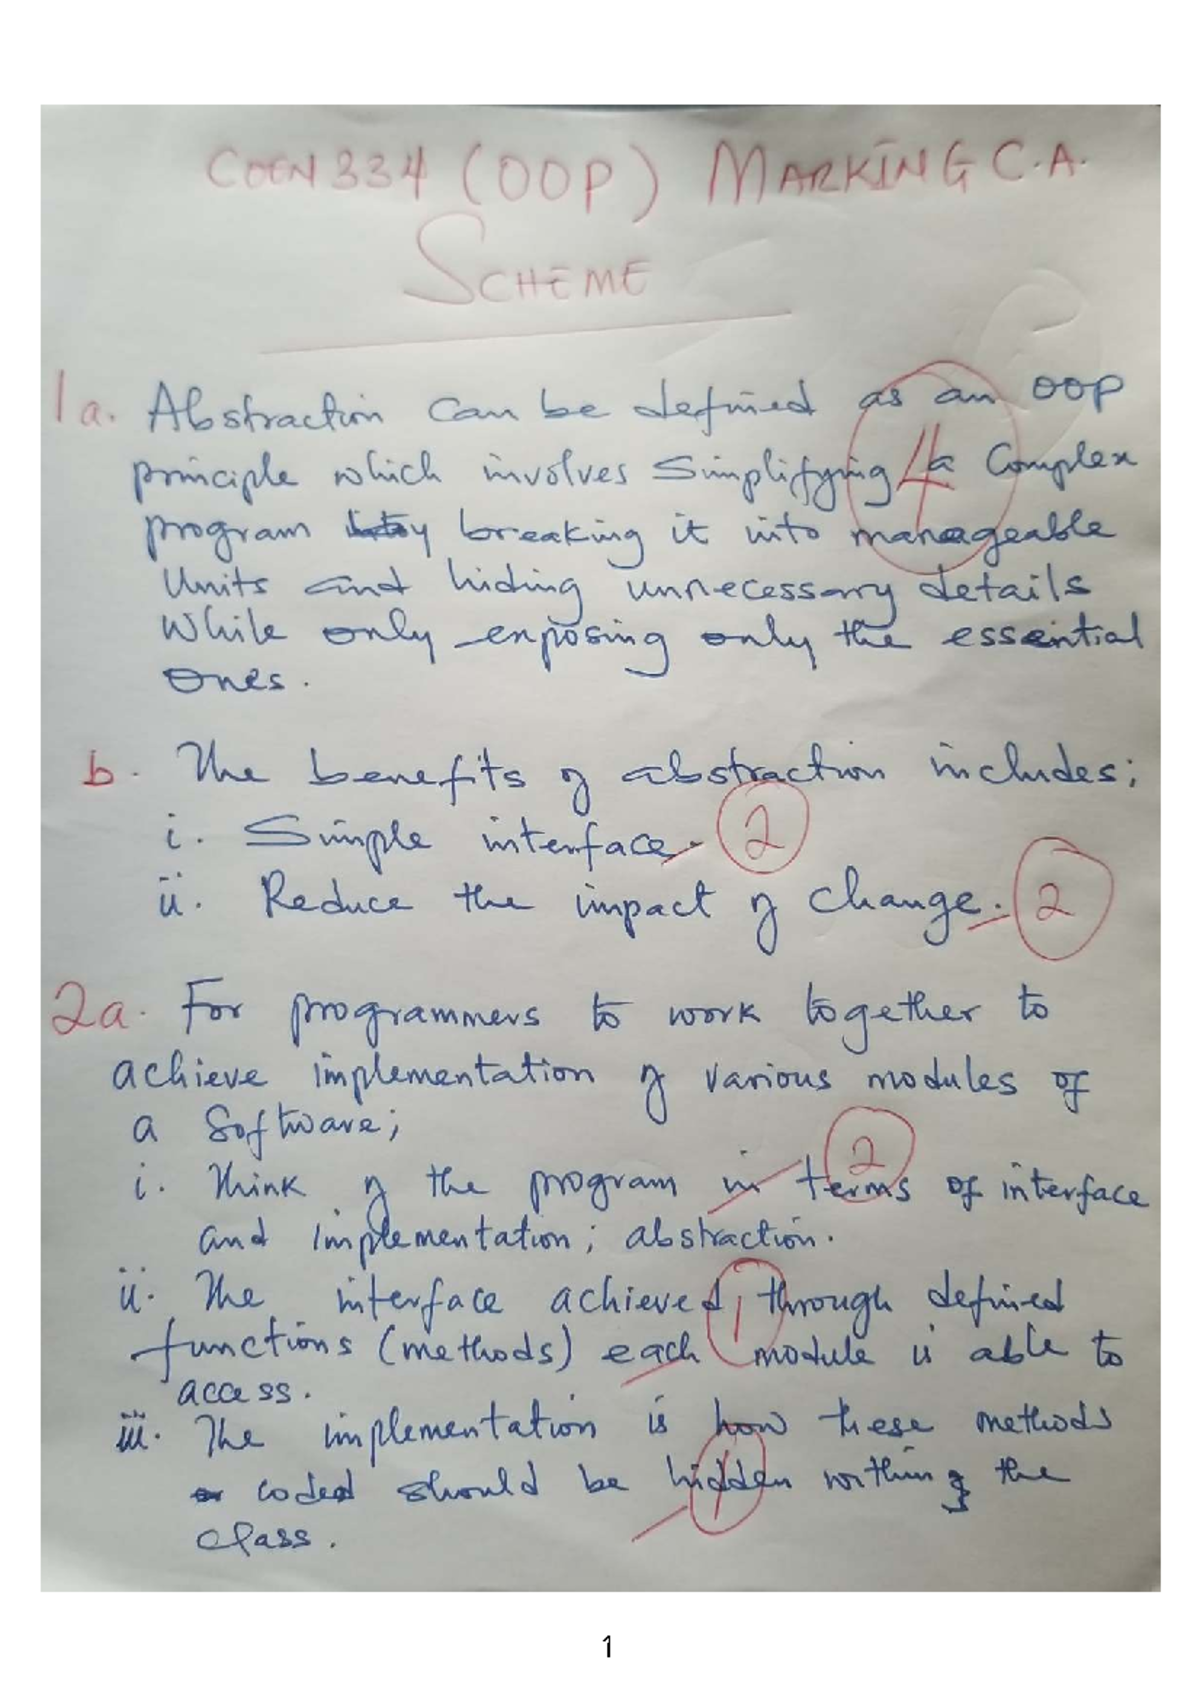 COEN 334 (OOP) MARKING C.A.
SCHEME
1a. Abstraction can be defined as an OOP
principle which involves simplifying a complex
4
program by breaking it into manageable
units and hiding unnecessary details
while only exposing only the essential
ones.
b. The benefits of abstraction includes;
i. Simple interface. 2
ii. Reduce the impact of change. 2
2a. For programmers to work together to
achieve implementation of various modules of
a software;
2
i. Think of the program in terms of interface
and implementation; abstraction.
ii. The interface achieved through defined
1
functions (methods) each module is able to
access.
iii. The implementation is how these methods
coded should be hidden within the
1
class.
1